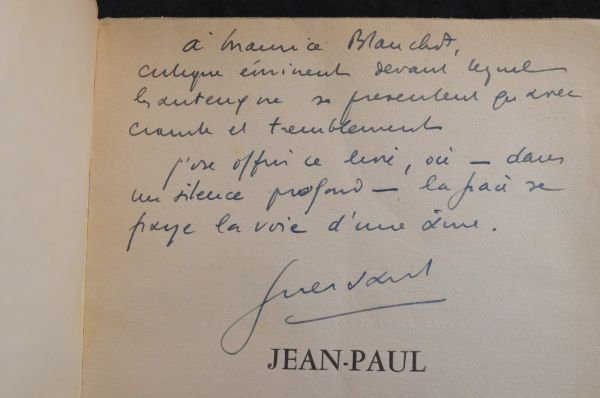 à Maurice Blanchot,
critique éminent devant lequel
les auteurs ne se présentent qu'avec
crainte et tremblement
j'ose offrir ce livre, où — dans
un silence profond — la foi se
fraye la voie d'une âme.
Guersant
JEAN-PAUL